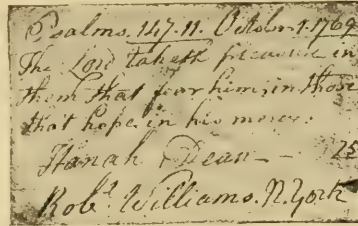 Psalms. 147. 11. October. 1. 1769
The Lord taketh pleasure in
them that fear him, in those
that hope in his mercy.
Hanah Dean — 25
Robt. Williams. N. York